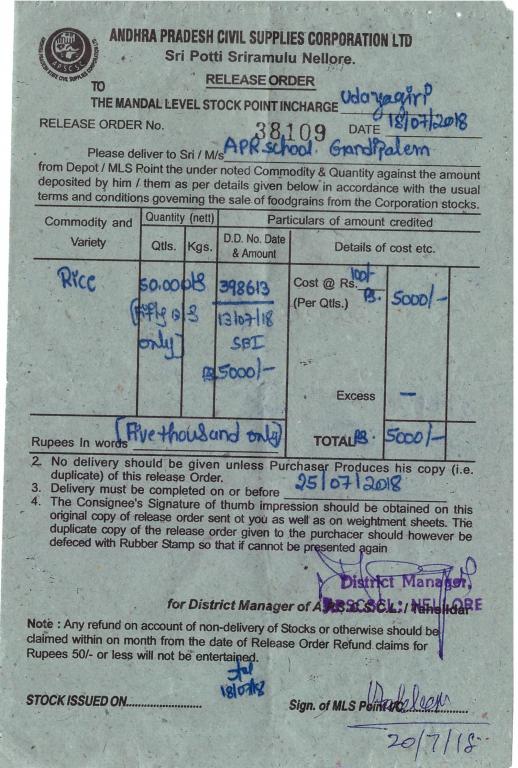 ANDHRA PRADESH CIVIL SUPPLIES CORPORATION LTD
Sri Potti Sriramulu Nellore.
RELEASE ORDER
TO
THE MANDAL LEVEL STOCK POINT INCHARGE Udayagiri
RELEASE ORDER No. 38109 DATE 18/07/2018
Please deliver to Sri / M/s APR school. Gandipalem
from Depot / MLS Point the under noted Commodity & Quantity against the amount
deposited by him / them as per details given below in accordance with the usual
terms and conditions goveming the sale of foodgrains from the Corporation stocks.
Commodity and Variety
Quantity (nett)
Particulars of amount credited
Qtls. Kgs. D.D. No. Date & Amount Details of cost etc.
Rice 50.00 398613 Cost @ Rs. 100/- Rs. 5000/-
(Per Qtls.)
13/07/18
only] SBI
Rs 5000/-
Excess —
Rupees In words [Five thousand only] TOTAL Rs. 5000/-
2. No delivery should be given unless Purchaser Produces his copy (i.e.
duplicate) of this release Order.
3. Delivery must be completed on or before 25/07/2018
4. The Consignee's Signature of thumb impression should be obtained on this
original copy of release order sent ot you as well as on weightment sheets. The
duplicate copy of the release order given to the purchacer should however be
defeced with Rubber Stamp so that if cannot be presented again
District Manager,
APSCSCL: NELLORE
for District Manager of A.P.S.C.S.C.L. / Tahsildar
Note : Any refund on account of non-delivery of Stocks or otherwise should be
claimed within on month from the date of Release Order Refund claims for
Rupees 50/- or less will not be entertained.
18/07/18
STOCK ISSUED ON........................ Sign. of MLS Point I/C
20/7/18